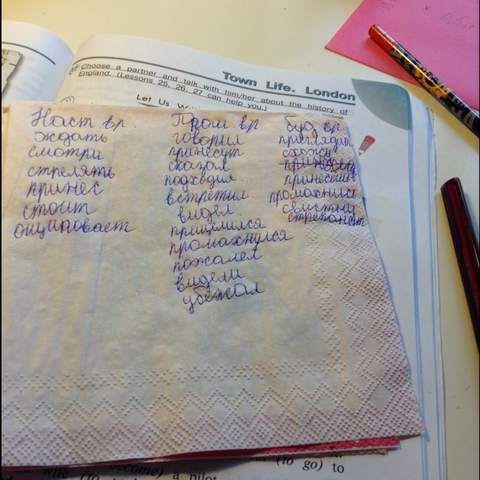 Town Life. London
Choose a partner and talk with him/her about the history of
England. (Lessons 25, 26, 27 can help you.)
Let Us
Наст. вр.
ждать
смотри
стрелять
принес
стоит
ощиповает
Прош. вр
говорил
принесут
сказал
подходил
встретил
видел
прицелился
промахнулся
пожалел
видели
убежал
буд. вр
приглядит
скажу
принесешь
промахнись
(to go) to
a pilot